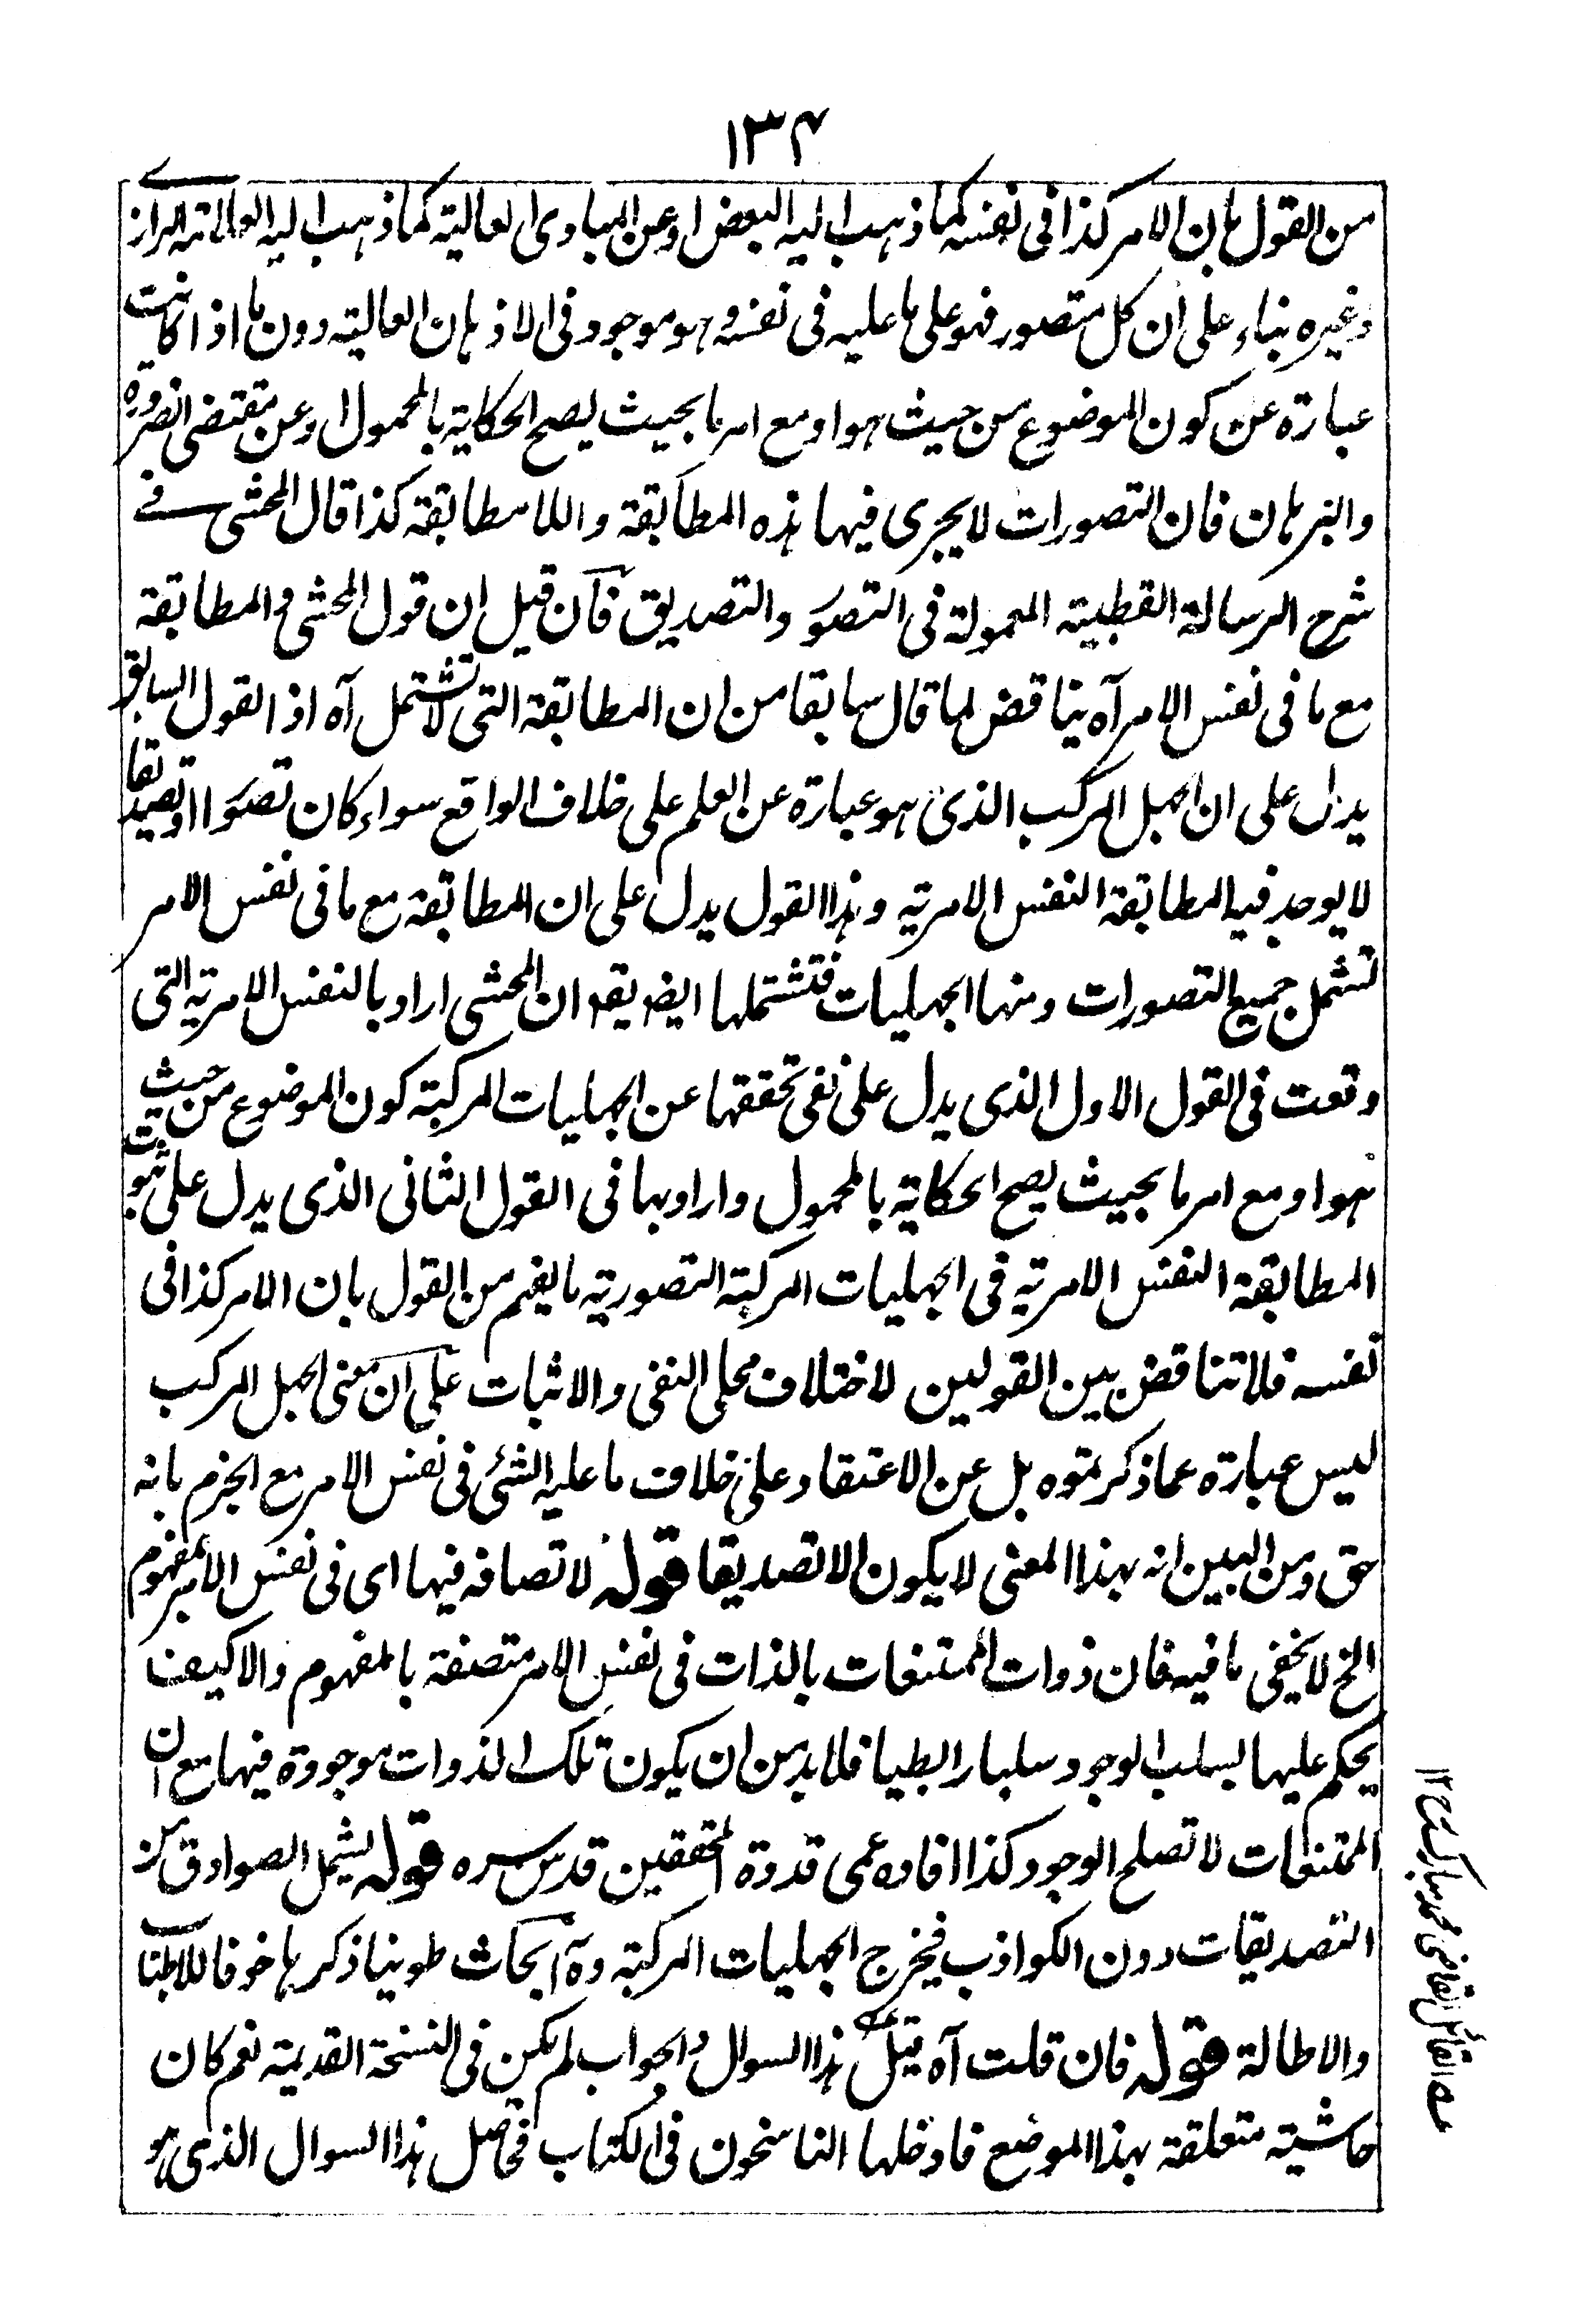 ١٣٤
من القول بان الامر كذا فى نفسه كما ذهب اليه البعض او عن المبادى العالية كما ذهب اليه العلامة الرازى
وغيره بناء على ان كل متصور فهو على ما عليه فى نفسه وهو موجود فى الاذهان العالية دون ما اذا كانت
عبارة عن كون الموضوع من حيث هو او مع امر ما بحيث يصح الحكاية بالمحمول او عن مقتضى الضرورة
والبرهان فان التصورات لا يجرى فيها هذه المطابقة واللامطابقة كذا قال المحشى فے
شرح الرسالة القطبية المعمولة فى التصور والتصديق فان قيل ان قول المحشى والمطابقة
مع ما فى نفس الامر آه يناقض لما قال سابقا من ان المطابقة التى لا تشتمل آه اذ القول السابق
يدل على ان الجهل المركب الذى هو عبارة عن العلم على خلاف الواقع سواء كان تصورا او تصديقا
لا يوجد فيه المطابقة النفس الامرية وهذا القول يدل على ان المطابقة مع ما فى نفس الامر
تشمل جميع التصورات ومنها الجهليات فتشتملها ايضا يقال ان المحشى اراد بالنفس الامرية التى
وقعت فى القول الاول الذى يدل على نفى تحققها عن الجهليات المركبة كون الموضوع من حيث
هو او مع امر ما بحيث يصح الحكاية بالمحمول واراد بها فى القول الثانى الذى يدل على ثبوت
المطابقة النفس الامرية فى الجهليات المركبة التصورية ما يفهم من القول بان الامر كذا فى
نفسه فلا تناقض بين القولين لاختلاف محلى النفى والاثبات على ان معنى الجهل المركب
ليس عبارة عما ذكرتموه بل عن الاعتقاد على خلاف ما عليه الشئ فى نفس الامر مع الجزم بانه
حق ومن البين انه بهذا المعنى لا يكون الا تصديقا قوله لاتصافه فيها اى فى نفس الامر لمفهوم
الخ لا يخفى ما فيه فان ذوات الممتنعات بالذات فى نفس الامر متصفة بالمفهوم والا كيف
يحكم عليها بسلب الوجود سلبا رابطيا فلا بد من ان يكون تلك الذوات موجودة فيها مع ان
الممتنعات لا تصلح الوجود كذا افاده عمى قدوة المحققين قدس سره قوله يشمل الصوادق من
التصديقات دون الكواذب فيخرج الجهليات المركبة وههنا ابحاث طوينا ذكرها خوفا للاطناب
والاطالة قوله فان قلت آه قيل هذا السوال والجواب لم يكن فى النسخة القديمة نعم كان
حاشية متعلقة بهذا الموضع فادخلها الناسخون فى الكتاب فحاصل هذا السوال الذى هو
القائل القاضى محمد مبارك ١٢